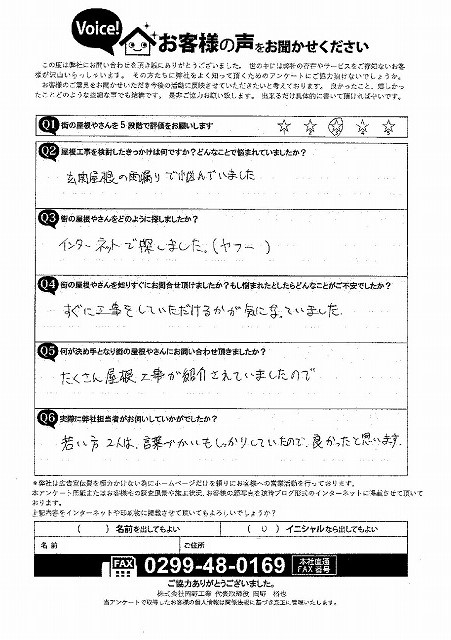 Voice!
お客様の声をお聞かせください
この度は弊社にお問い合わせを頂き誠にありがとうございました。世の中には弊社の存在やサービスをご存知ないお客
様が沢山いらっしゃいます。その方たちに弊社をよく知って頂くためのアンケートにご協力頂けないでしょうか。
お客様のご意見をお聞かせいただき今後の活動に反映させていただきたいと考えております。良かったこと、嬉しかっ
たことどのような些細な事でも結構です。是非ご協力お願い致します。出来るだけ具体的に書いて頂ければ幸いです。
Q1 街の屋根やさんを5段階で評価をお願いします ☆ ☆ ☆ ☆ ☆
Q2 屋根工事を検討したきっかけは何ですか?どんなことで悩まれていましたか?
玄関屋根の雨漏りで悩んでいました
Q3 街の屋根やさんをどのように探しましたか?
インターネットで探しました。(ヤフー)
Q4 街の屋根やさんを知りすぐにお問合せ頂けましたか?もし悩まれたとしたらどんなことがご不安でしたか?
すぐに工事をしていただけるかが気になっていました。
Q5 何が決め手となり街の屋根やさんにお問い合わせ頂きましたか?
たくさん屋根工事が紹介されていましたので
Q6 実際に弊社担当者がお伺いしていかがでしたか?
若い方2人は、言葉づかいもしっかりしていたので、良かったと思います。
*弊社は広告宣伝費を極力かけない為にホームページだけを頼りにお客様への営業活動を行っております。
本アンケート用紙またはお客様の調査風景や施工状況、お客様の顔写真を後時ブログ形式のインターネットに掲載させて頂いて
おります。
上記内容をインターネットや印刷物に掲載させて頂いてもよろしいでしょうか?
( ) 名前を出してもよい ( ○ ) イニシャルなら出してもよい
名前 ご住所
FAX 0299-48-0169 本社直通 FAX番号
ご協力ありがとうございました。
株式会社岡野工業 代表取締役 岡野 裕也
当アンケートで取得したお客様の個人情報は関係法令に基づき厳正に管理いたします。